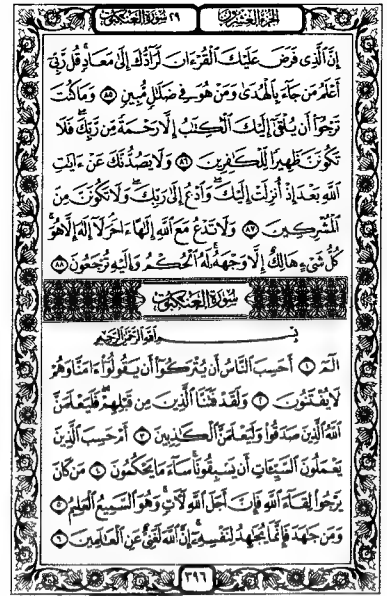 الجزء العشرون ٢٩ سورة العنكبوت
إِنَّ ٱلَّذِى فَرَضَ عَلَيْكَ ٱلْقُرْءَانَ لَرَآدُّكَ إِلَىٰ مَعَادٍ ۚ قُل رَّبِّىٓ
أَعْلَمُ مَن جَآءَ بِٱلْهُدَىٰ وَمَنْ هُوَ فِى ضَلَٰلٍ مُّبِينٍ ٨٥ وَمَا كُنتَ
تَرْجُوٓا۟ أَن يُلْقَىٰٓ إِلَيْكَ ٱلْكِتَٰبُ إِلَّا رَحْمَةً مِّن رَّبِّكَ ۖ فَلَا
تَكُونَنَّ ظَهِيرًا لِّلْكَٰفِرِينَ ٨٦ وَلَا يَصُدُّنَّكَ عَنْ ءَايَٰتِ
ٱللَّهِ بَعْدَ إِذْ أُنزِلَتْ إِلَيْكَ ۖ وَٱدْعُ إِلَىٰ رَبِّكَ ۖ وَلَا تَكُونَنَّ مِنَ
ٱلْمُشْرِكِينَ ٨٧ وَلَا تَدْعُ مَعَ ٱللَّهِ إِلَٰهًا ءَاخَرَ ۘ لَآ إِلَٰهَ إِلَّا هُوَ ۚ
كُلُّ شَىْءٍ هَالِكٌ إِلَّا وَجْهَهُۥ ۚ لَهُ ٱلْحُكْمُ وَإِلَيْهِ تُرْجَعُونَ ٨٨
سورة العنكبوت
بِسْمِ ٱللَّهِ ٱلرَّحْمَٰنِ ٱلرَّحِيمِ
الٓمٓ ١ أَحَسِبَ ٱلنَّاسُ أَن يُتْرَكُوٓا۟ أَن يَقُولُوٓا۟ ءَامَنَّا وَهُمْ
لَا يُفْتَنُونَ ٢ وَلَقَدْ فَتَنَّا ٱلَّذِينَ مِن قَبْلِهِمْ ۖ فَلَيَعْلَمَنَّ
ٱللَّهُ ٱلَّذِينَ صَدَقُوا۟ وَلَيَعْلَمَنَّ ٱلْكَٰذِبِينَ ٣ أَمْ حَسِبَ ٱلَّذِينَ
يَعْمَلُونَ ٱلسَّيِّـَٔاتِ أَن يَسْبِقُونَا ۚ سَآءَ مَا يَحْكُمُونَ ٤ مَن كَانَ
يَرْجُوا۟ لِقَآءَ ٱللَّهِ فَإِنَّ أَجَلَ ٱللَّهِ لَـَٔاتٍ ۚ وَهُوَ ٱلسَّمِيعُ ٱلْعَلِيمُ ٥
وَمَن جَٰهَدَ فَإِنَّمَا يُجَٰهِدُ لِنَفْسِهِۦٓ ۚ إِنَّ ٱللَّهَ لَغَنِىٌّ عَنِ ٱلْعَٰلَمِينَ ٦
٣٩٦